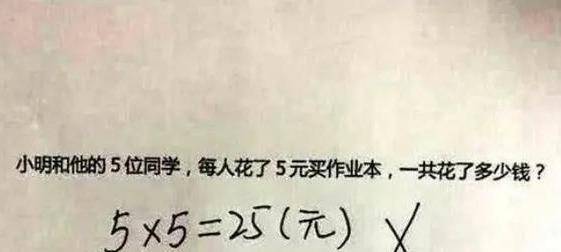 小明和他的5位同学，每人花了5元买作业本，一共花了多少钱？
5×5=25(元) ×